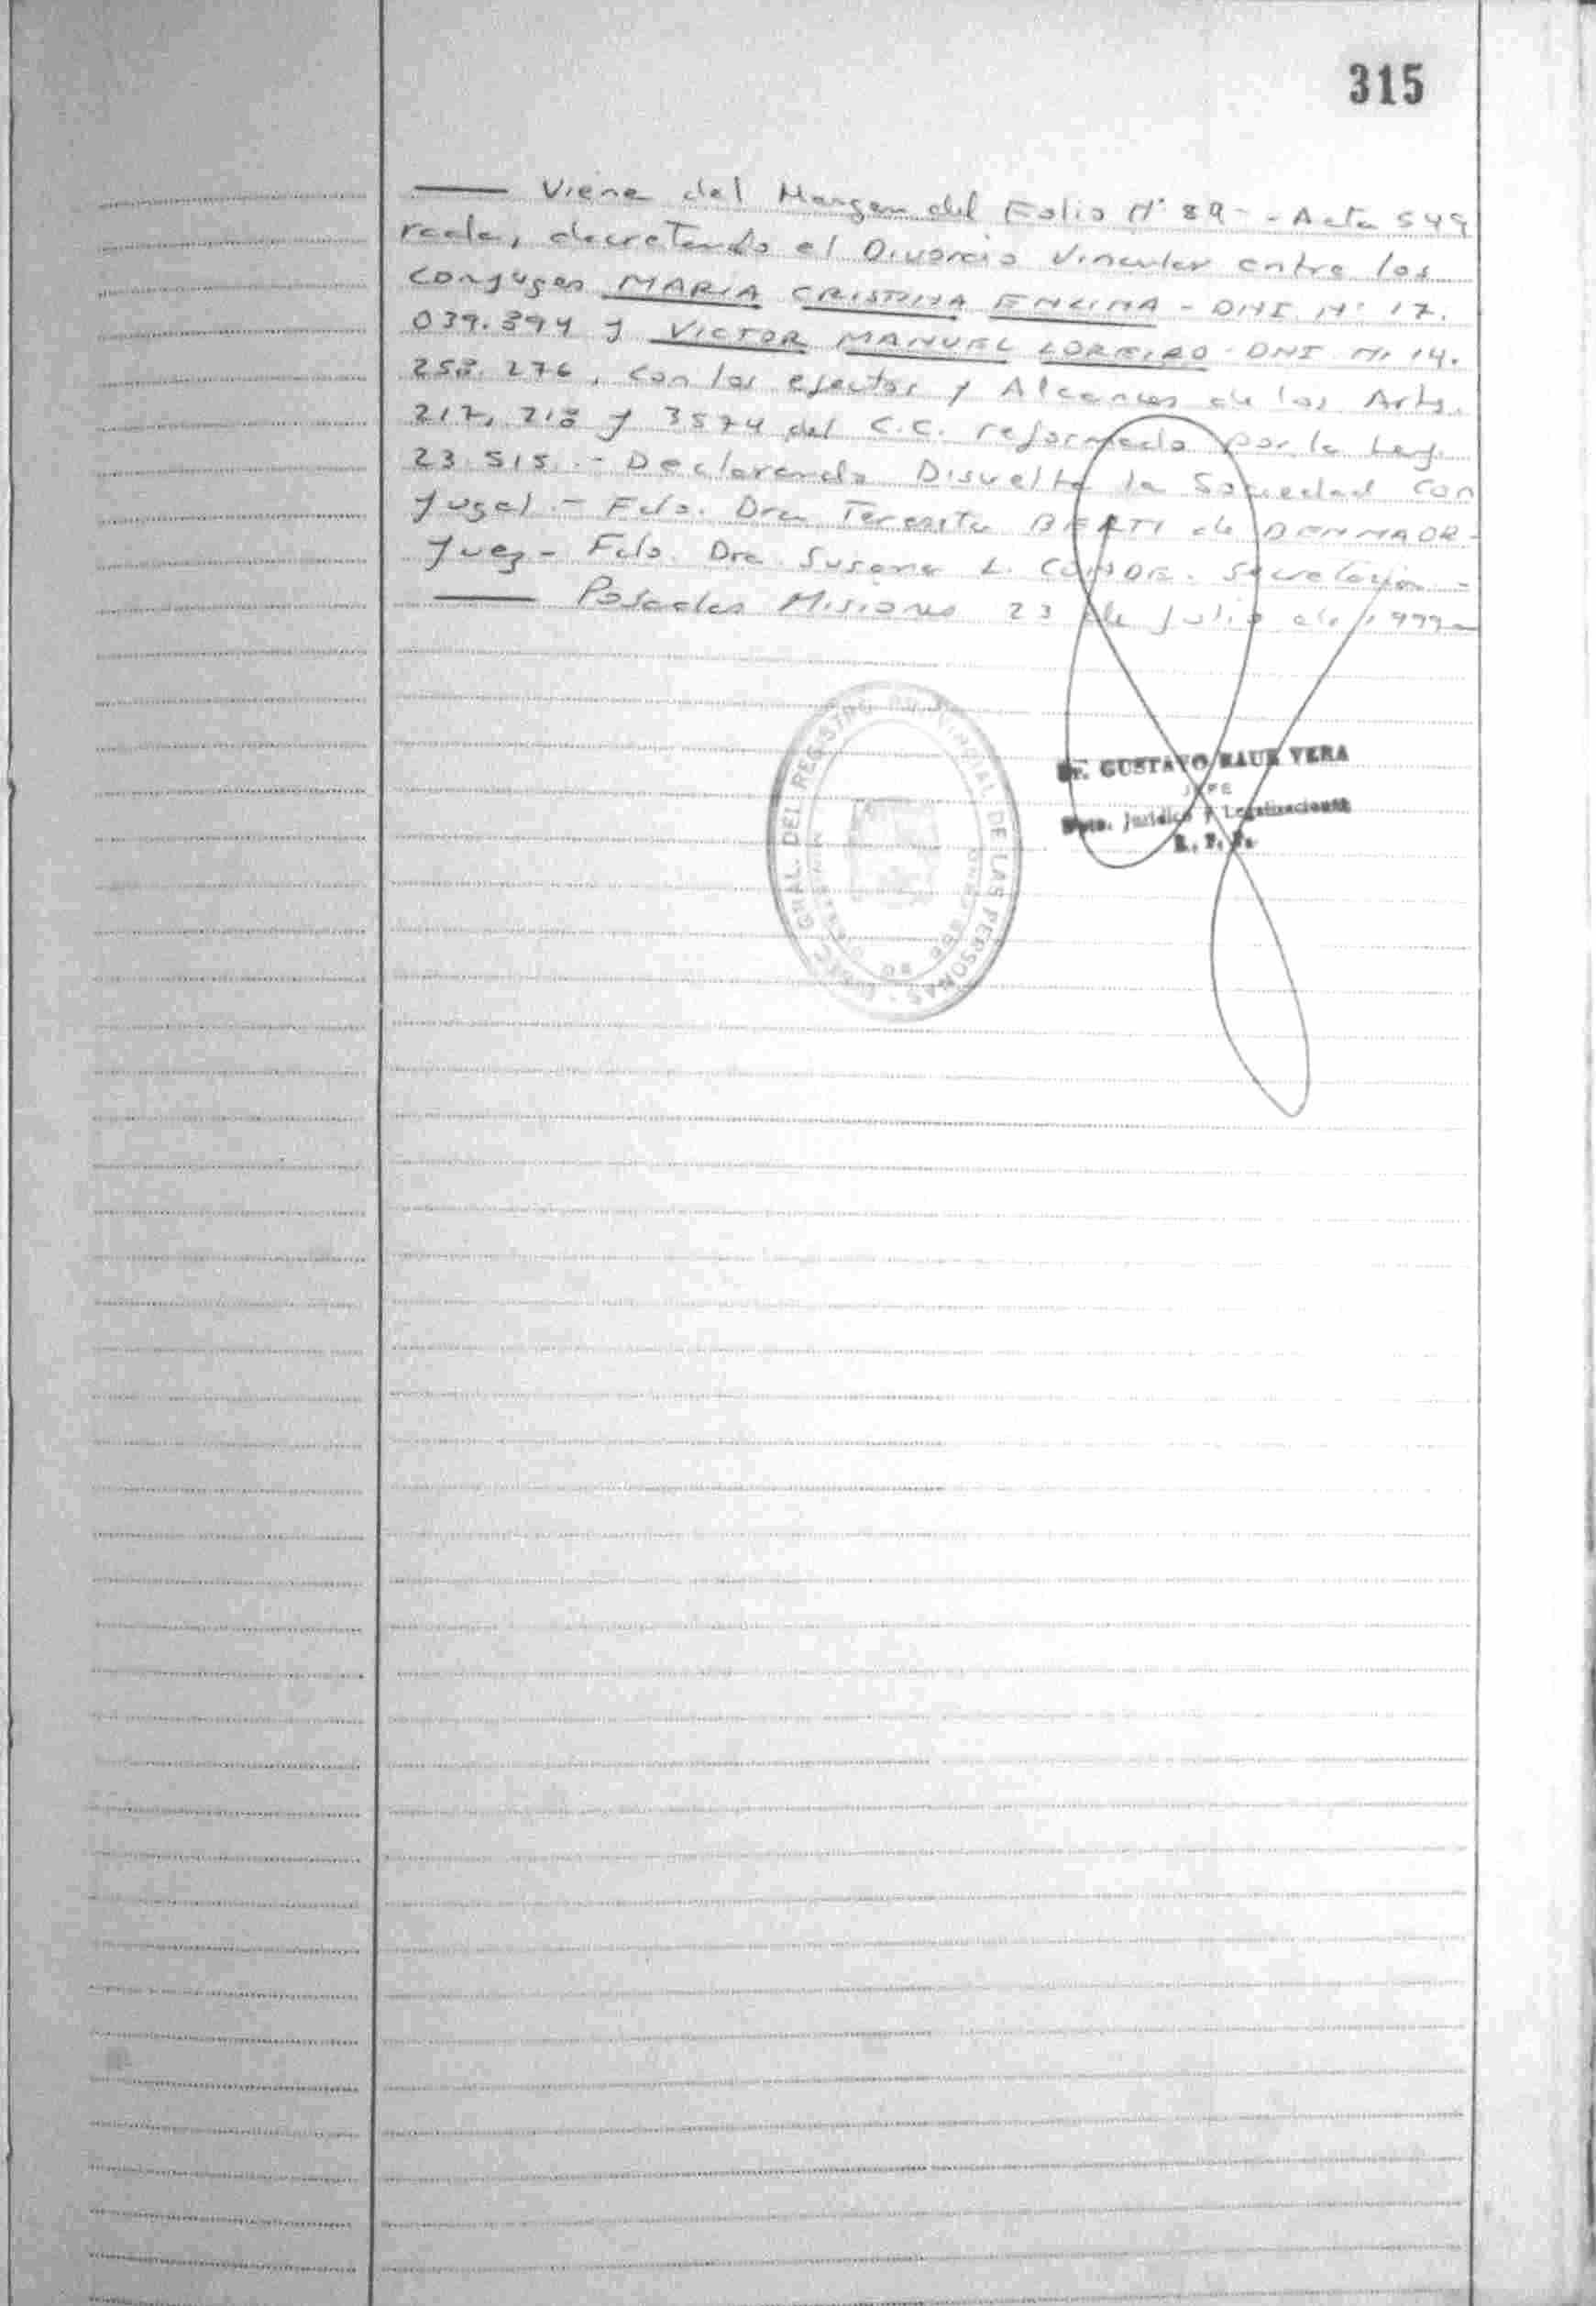 315
—— Viene del Margen del Folio Nº 89 - - Acta 549
rada, decretando el Divorcio Vincular entre los
Conyuges MARIA CRISTINA ENCINA - DNI. Nº 17.
039.394 y VICTOR MANUEL LOREIRO - DNI. Nº 14.
258.276, con los efectos y Alcances de los Arts.
217, 218 y 3574 del C.C. reformado por la Ley
23.515. - Declarando Disuelta la Sociedad Con
yugal. - Fdo. Dra Teresita BERTI de
Juez - Fdo. Dra. Susana L. CONDE. Secretaria -
—— Posadas Misiones 23 de Julio de 1999 -
Dr. GUSTAVO RAUL VERA
JEFE
Dpto. Jurídico y Legalizaciones
R. P. P.
GRAL. DEL REGISTRO PROVINCIAL DE LAS PERSONAS